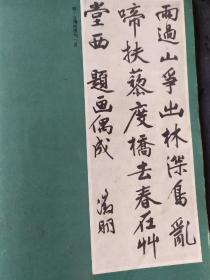 雨過山爭出林深鳥亂
啼扶藜度橋去春在艸
堂西 題画偶成